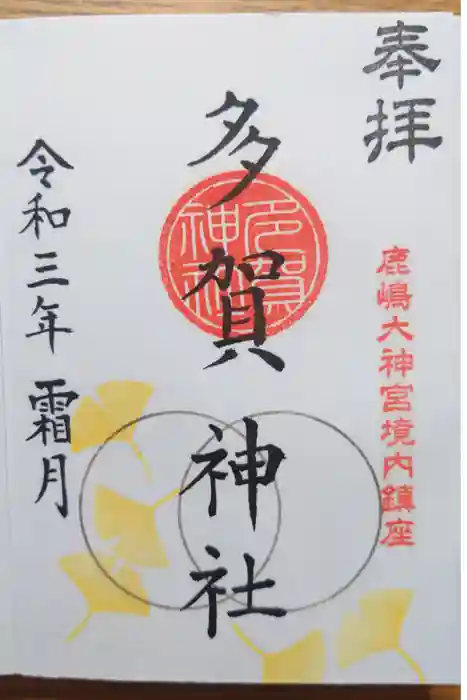 奉拝
鹿嶋大神宮境内鎮座
多賀神社
多賀神社
令和三年 霜月